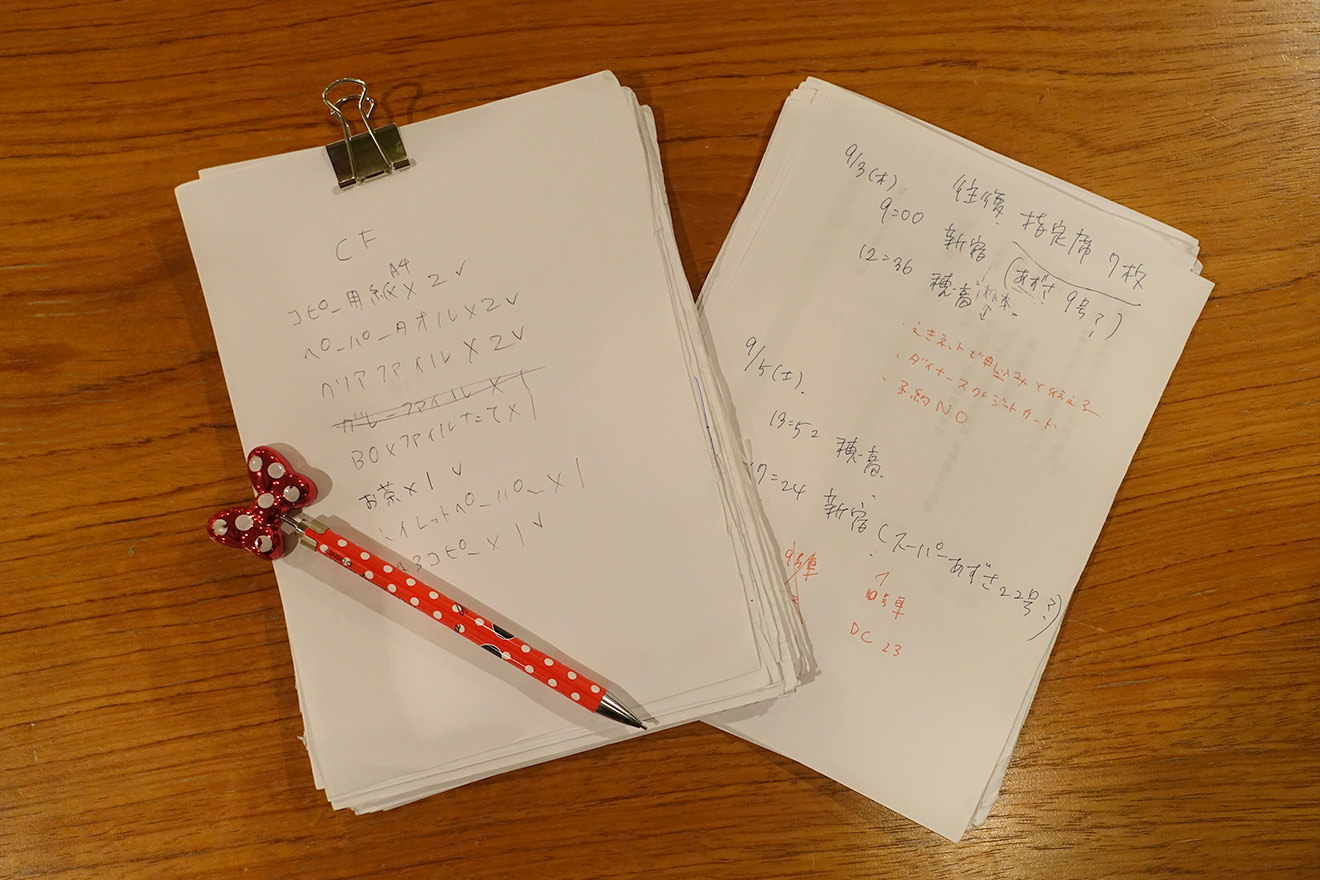 CF
A4
コピー用紙×2✓
ペーパータオル×2✓
クリアファイル×2✓
ファイル×1
BOXファイルたて×1
お茶×1✓
トイレットペーパー×1
A3コピー×1✓
9/3(木) 往復 指定席 7枚
9:00 新宿 (あずさ9号?)
12:36 穂高
・えきネットで申込みと伝える
・ダイナースクレジットカード
・予約NO
9/5(土)
13:52 穂高
17:24 新宿(スーパーあずさ22号?)
9号車
号車
DC 23